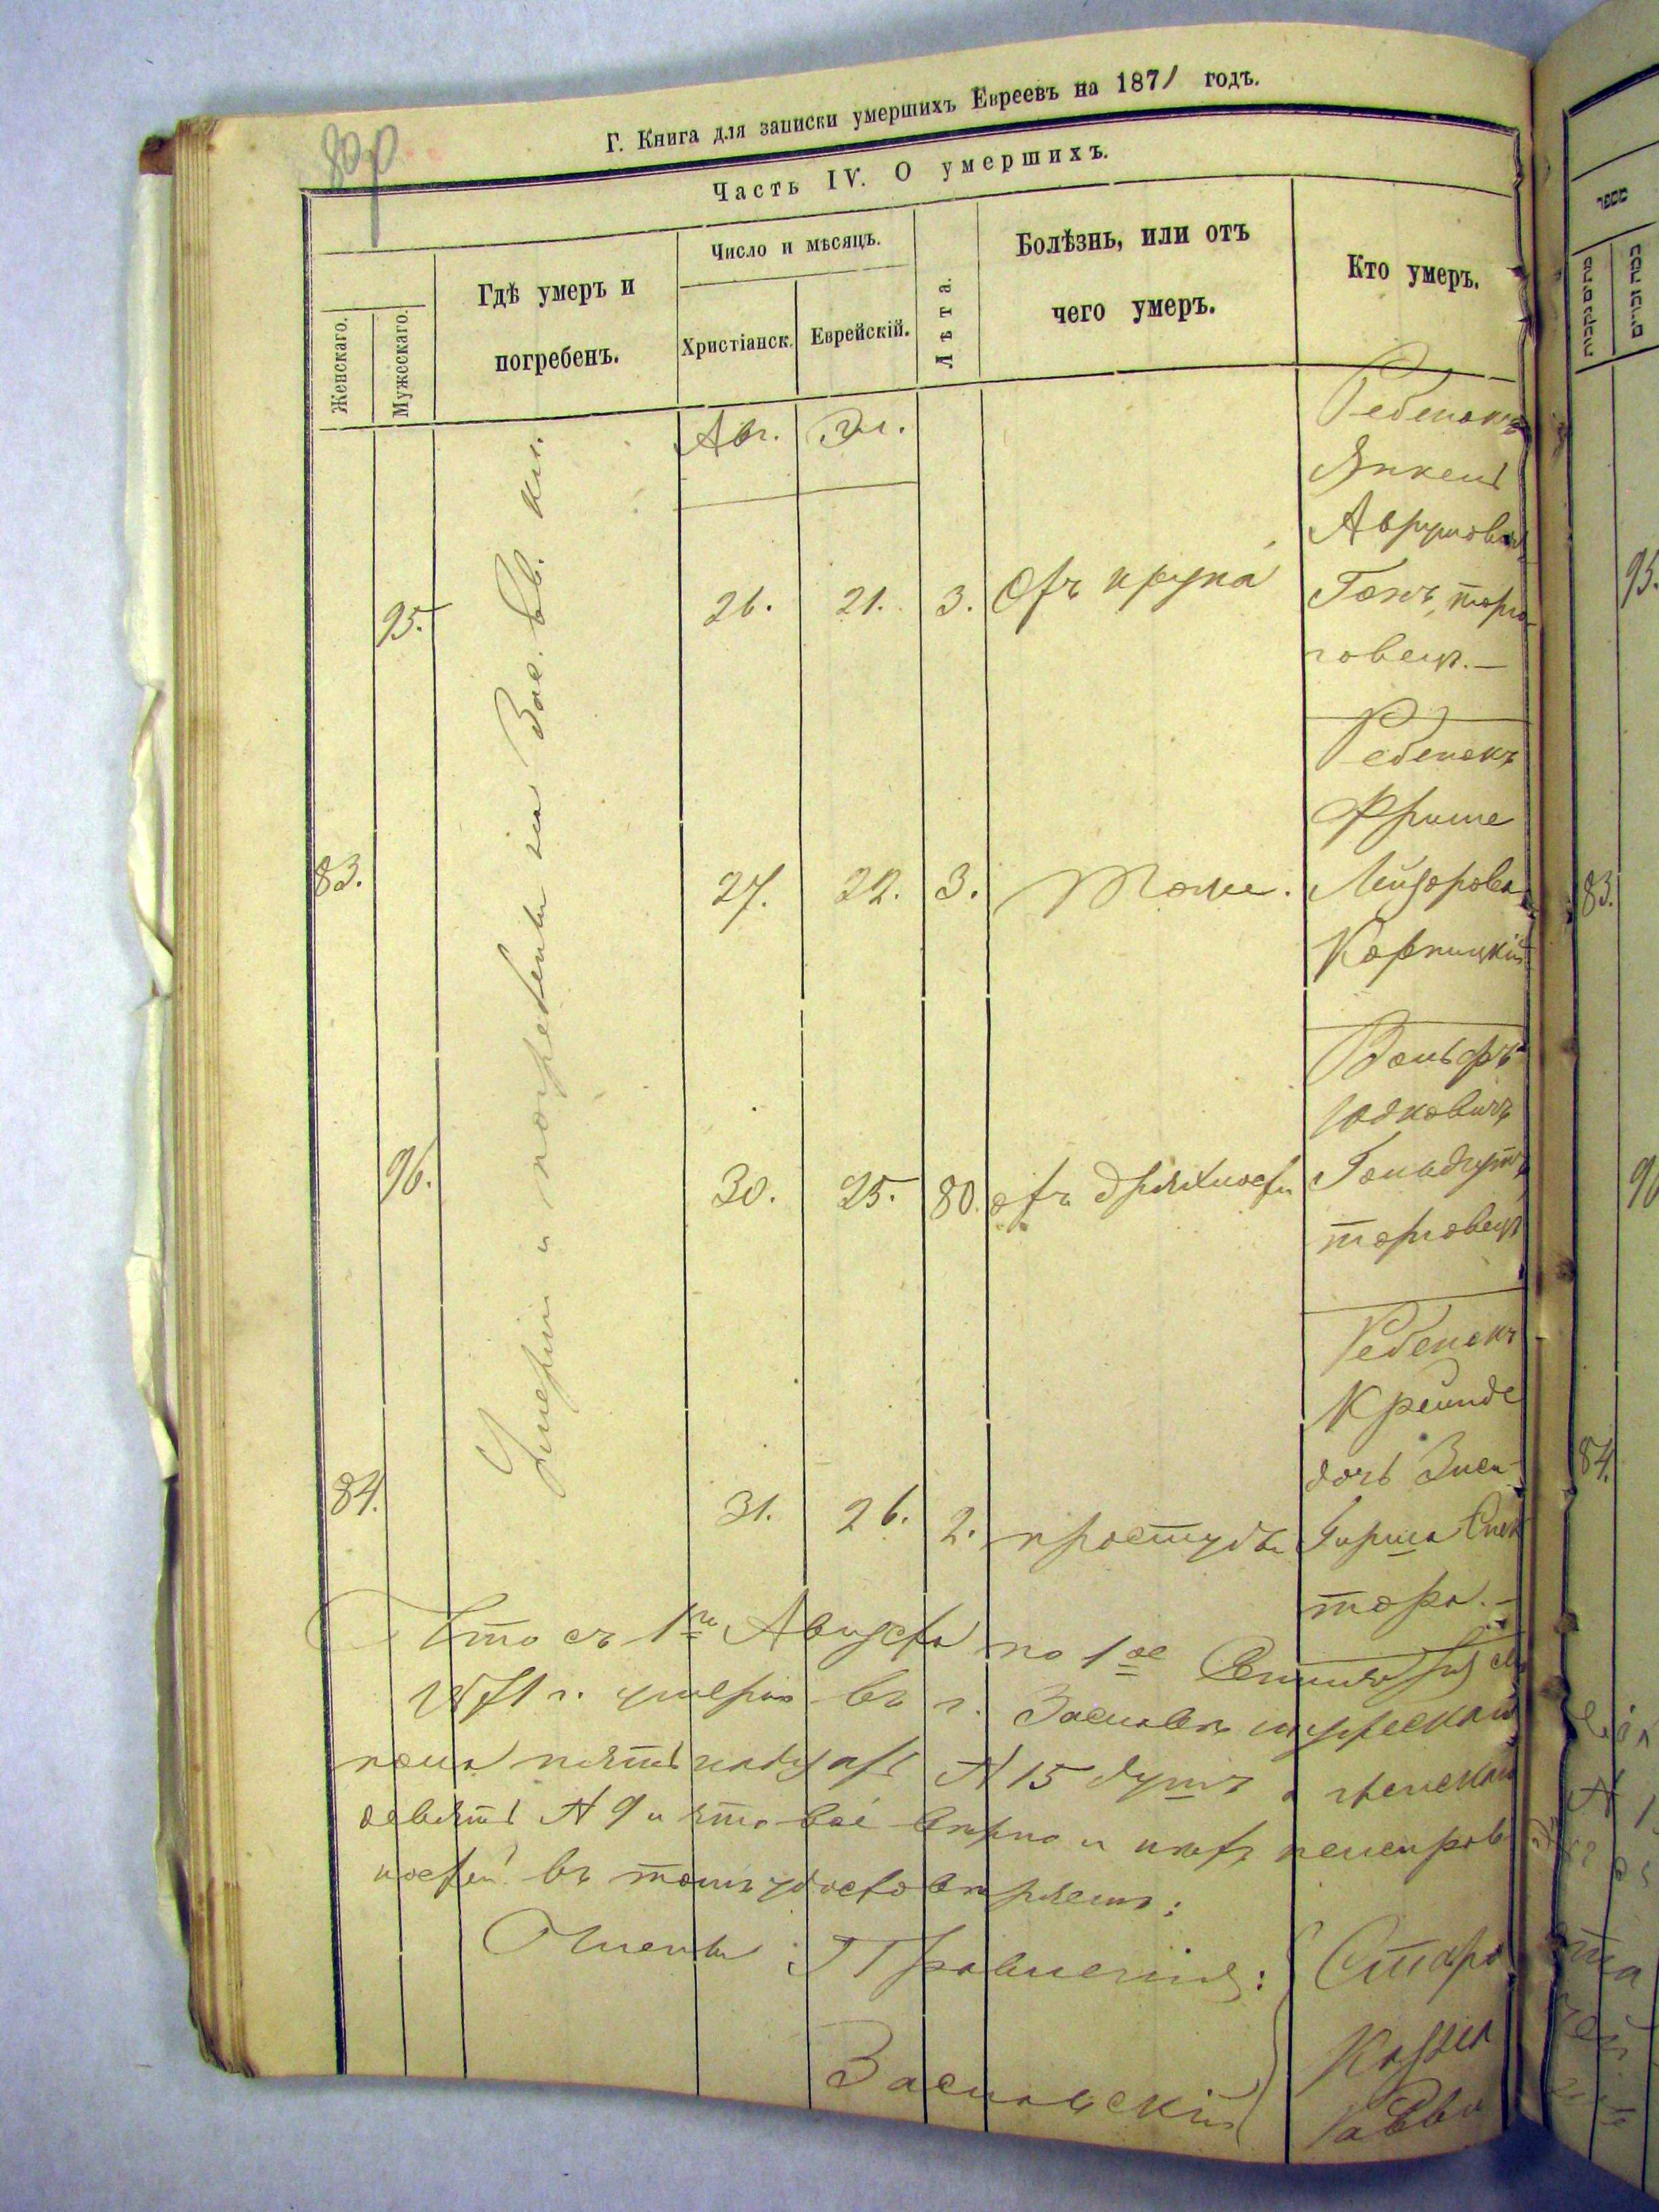 Г. Книга для записки умершихъ Евреевъ на 1871 годъ.
Часть IV. О умершихъ.
Женскаго.
Мужескаго.
Гдѣ умеръ и
погребенъ.
Число и мѣсяцъ.
Христіанск.
Еврейскій.
Лѣта.
Болѣзнь, или отъ
чего умеръ.
Кто умеръ.
Умерли и погребены на Зас. Ев. кл.
Авг. Эл.
95. 26. 21. 3. Отъ крупа
Ребенокъ
Янкель
Аврумовъ
Гохъ, торго-
говецъ.—
83. 27. 22. 3. Тоже.
Ребенокъ
Фриме
Лейзорова
96. 30. 25. 80. отъ дряхлости
Вольфъ
Юдковичъ
торговецъ
84. 31. 26. 2. простуды
Ребенокъ
Крейнде
дочь Зиси-
Гирша Спек
тора.—
Что съ 1го Августа по 1ое Сентября
1871 г. умерло въ г. Заславѣ мужескаго
пола пятнадцать № 15 душъ а женскаго
девять № 9 и что всё вѣрно и нѣтъ
въ томъ удостовѣряемъ:
Члены Правленія: Старо
Заславскій
Казен
Равви
מספר
95.
83.
84.